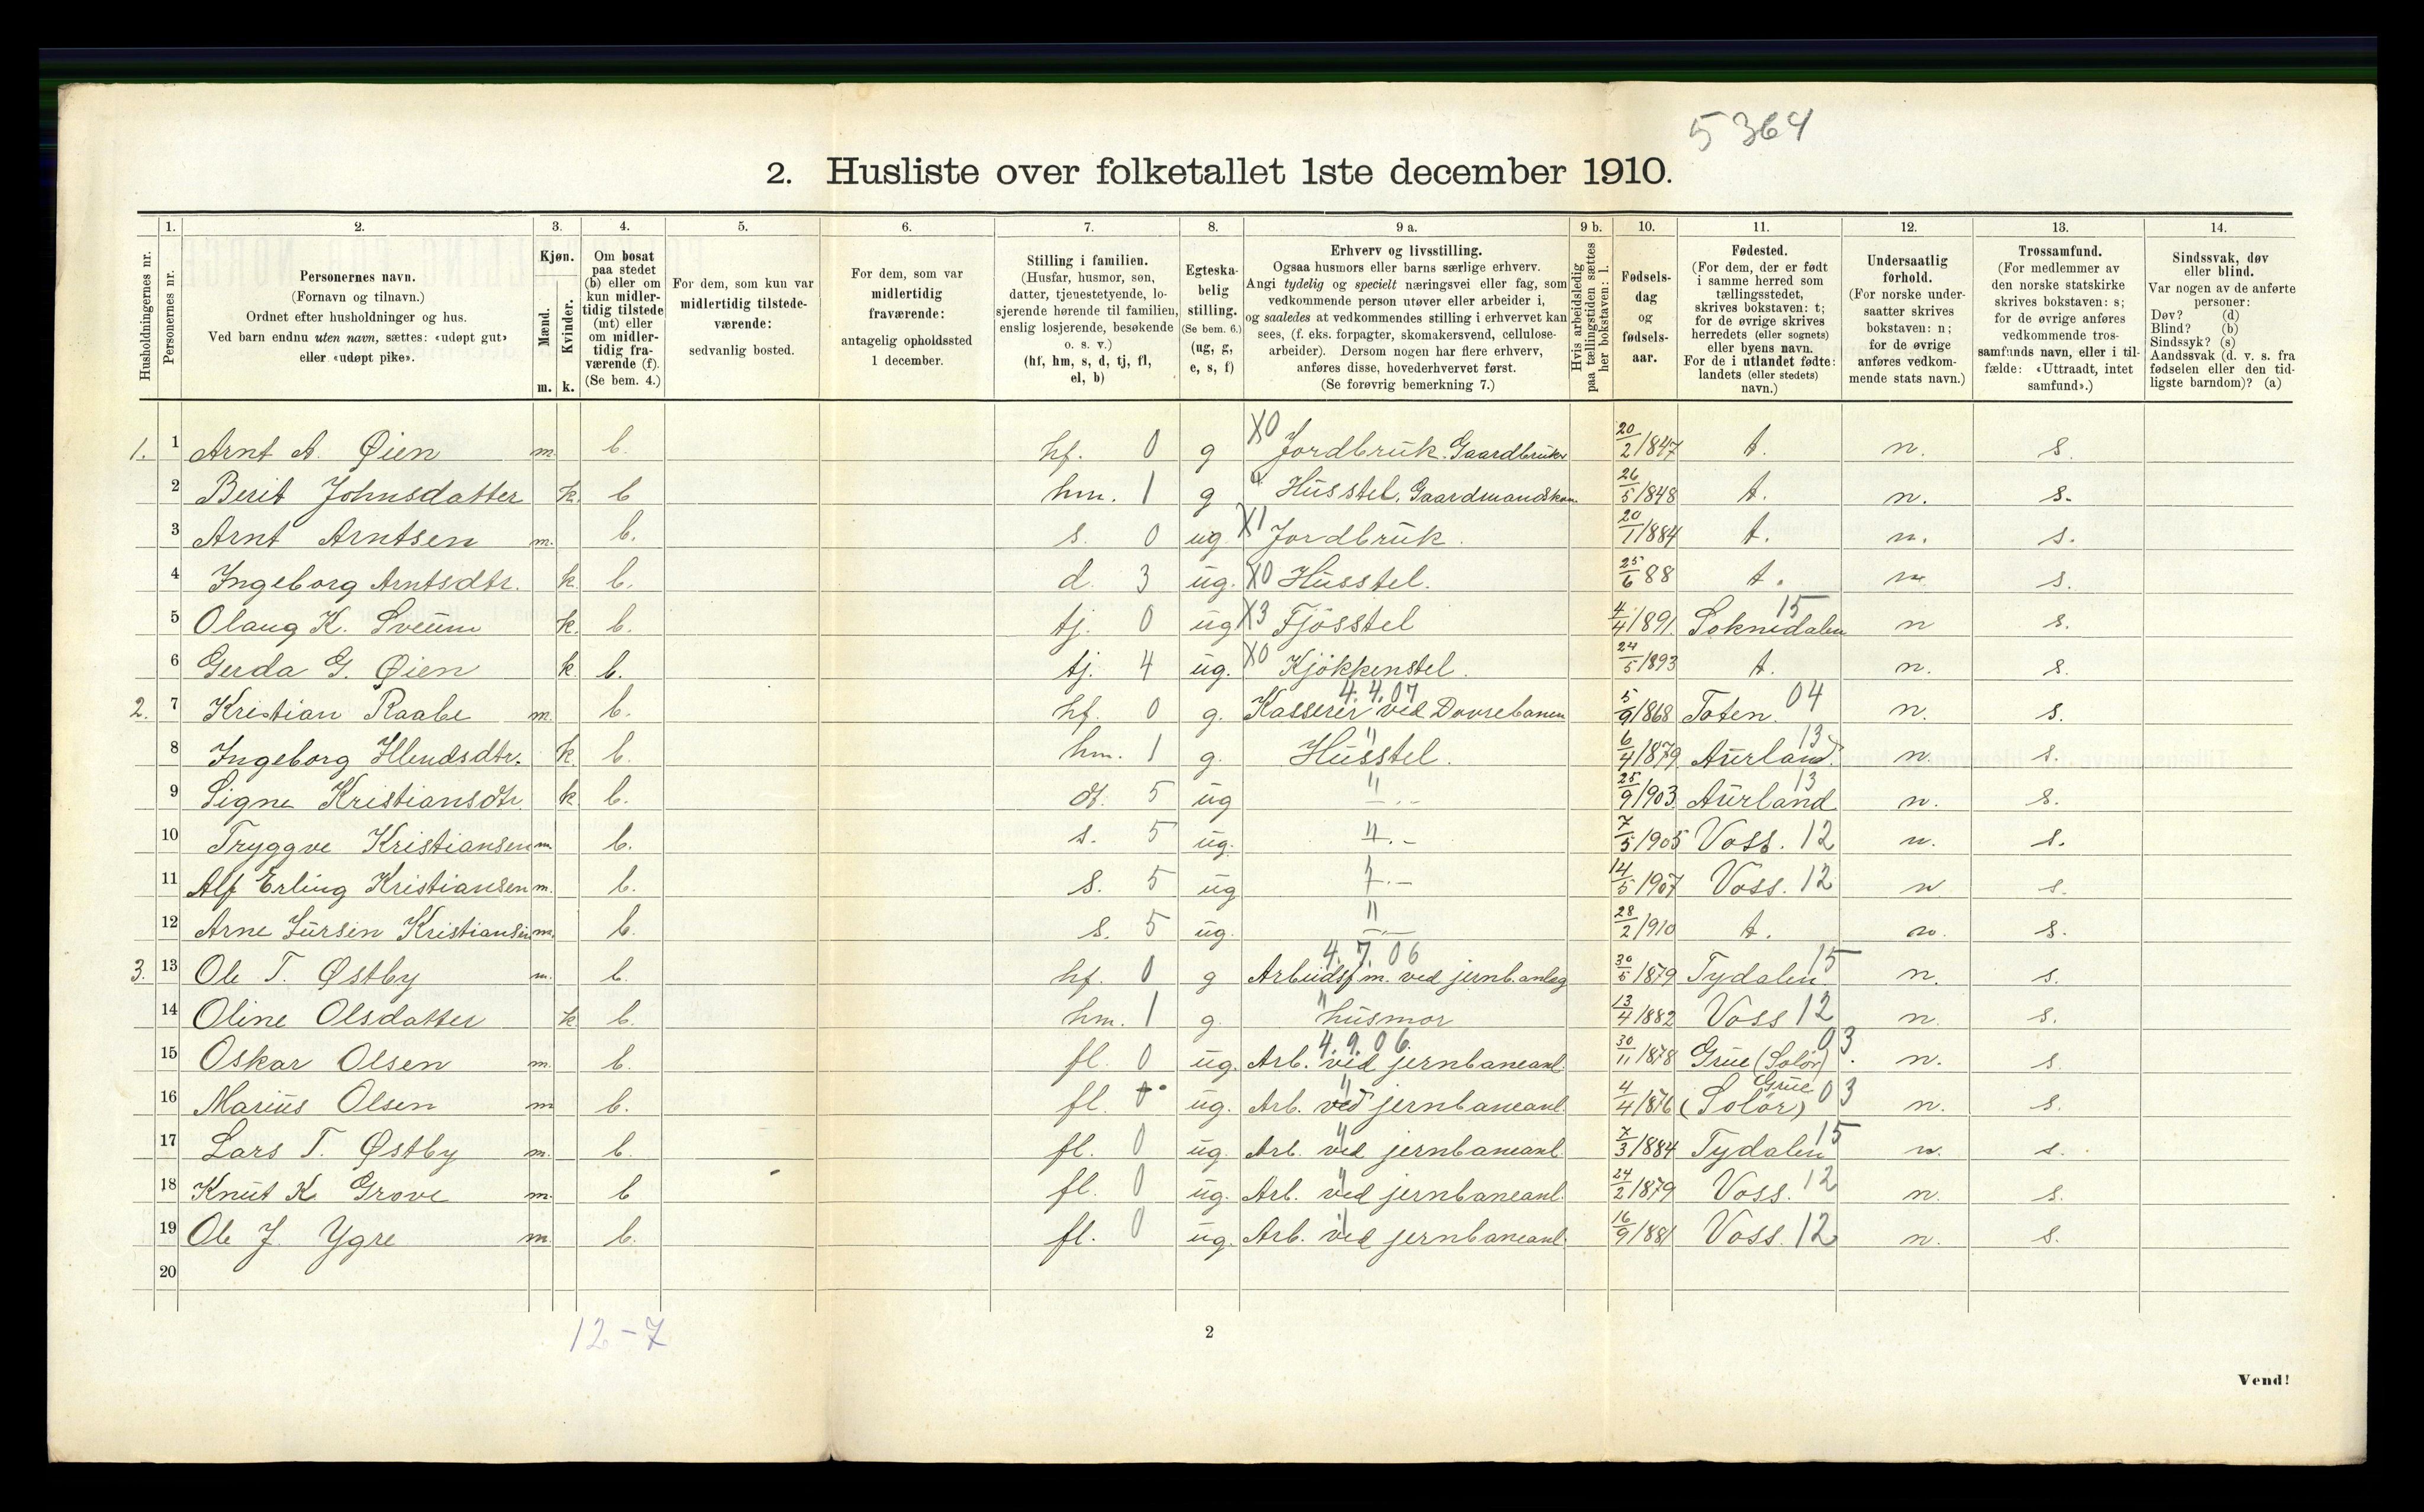 5364
2. Husliste over folketallet 1ste december 1910.
Husholdningernes nr.
1. Personernes nr.
2. Personernes navn. (Fornavn og tilnavn.) Ordnet efter husholdninger og hus. Ved barn endnu uten navn, sættes: «udøpt gut» eller «udøpt pike».
3. Kjøn. Mænd. m. Kvinder. k.
4. Om bosat paa stedet (b) eller om kun midlertidig tilstede (mt) eller om midlertidig fraværende (f). (Se bem. 4.)
5. For dem, som kun var midlertidig tilstedeværende: sedvanlig bosted.
6. For dem, som var midlertidig fraværende: antagelig opholdssted 1 december.
7. Stilling i familien. (Husfar, husmor, søn, datter, tjenestetyende, losjerende hørende til familien, enslig losjerende, besøkende o. s. v.) (hf, hm, s, d, tj, fl, el, b)
8. Egteskabelig stilling. (Se bem. 6.) (ug, g, e, s, f)
9 a. Erhverv og livsstilling. Ogsaa husmors eller barns særlige erhverv. Angi tydelig og specielt næringsvei eller fag, som vedkommende person utøver eller arbeider i, og saaledes at vedkommendes stilling i erhvervet kan sees, (f. eks. forpagter, skomakersvend, cellulosearbeider). Dersom nogen har flere erhverv, anføres disse, hovederhvervet først. (Se forøvrig bemerkning 7.)
9 b. Hvis arbeidsledig paa tællingstiden sættes her bokstaven: l.
10. Fødselsdag og fødselsaar.
11. Fødested. (For dem, der er født i samme herred som tællingsstedet, skrives bokstaven: t; for de øvrige skrives herredets (eller sognets) eller byens navn. For de i utlandet fødte: landets (eller stedets) navn.)
12. Undersaatlig forhold. (For norske undersaatter skrives bokstaven: n; for de øvrige anføres vedkommende stats navn.)
13. Trossamfund. (For medlemmer av den norske statskirke skrives bokstaven: s; for de øvrige anføres vedkommende trossamfunds navn, eller i tilfælde: «Uttraadt, intet samfund».)
14. Sindssvak, døv eller blind. Var nogen av de anførte personer: Døv? (d) Blind? (b) Sindssyk? (s) Aandssvak (d. v. s. fra fødselen eller den tidligste barndom)? (a)
1. 1 Arnt A. Øien m. b. hf. 0 g X0 Jordbruk. Gaardbruker 20/2 1847 t. n. s.
2 Berit Johnsdatter k. b hm. 1 g " Husstel, Gaardmandskone 26/5 1848 t. n. s.
3 Arnt Arntsen m. b. s. 0 ug X1 Jordbruk. 20/1 1884 t. n. s.
4 Ingeborg Arntsdtr. k. b. d. 3 ug. X0 Husstel. 25/6 88 t. n s.
5 Olaug K. Sveum k. b. tj. 0 ug X3 Fjøsstel 4/4 1891. Soknedalen 15 n s.
6 Gerda G. Øien k. b. tj. 4 ug. X0 Kjøkkenstel. 24/5 1893 t. n. s.
2. 7 Kristian Raabe m. b. hf. 0 g. 4.4.07 Kasserer ved Dovrebanen 5/9 1868 Toten. 04 n. s.
8 Ingeborg dtr. k. b. hm. 1 g. " Husstel. 6/4 1879 Aurland. 13 n. s.
9 Signe Kristiansdtr k b. dt. 5 ug " 25/9 1903 Aurland 13 n. s.
10 Tryggve Kristiansen m. b. s. 5 ug. " 7/5 1905 Voss. 12 n. s.
11 Alf Erling Kristiansen m. b. s. 5 ug 14/5 1907 Voss. 12 n s.
12 Arne Kristiansen m. b. s. 5 ug. " 28/2 1910 t. n. s.
3. 13 Ole T. Østby m. b. hf. 0 g 4.7.06 Arbeidsfm. ved jernb.anlæg 30/5 1879 Tydalen. 15 n. s.
14 Oline Olsdatter k b. hm. 1 g. " husmor 13/4 1882 Voss 12 n. s.
15 Oskar Olsen m. b. fl. 0 ug. 4.9.06. Arb. ved jernbaneanl. 30/11 1878 Grue (Solør). 03 n. s.
16 Marius Olsen m b. fl. ug. " Arb. ved jernbaneanl. 4/4 1876 Grue (Solør) 03 n. s.
17 Lars T. Østby m. b. fl. 0 ug. " Arb. ved jernbaneanl. 7/3 1884 Tydalen 15 n. s.
18 Knut K. Grove m. b fl. 0 ug. " Arb. ved jernbaneanl. 24/2 1879 Voss. 12 n. s.
19 Ole J. Ygre m. b. fl. 0 ug. " Arb. ved jernbaneanl. 16/9 1881 Voss. 12 n. s.
20
12-7
2
Vend!